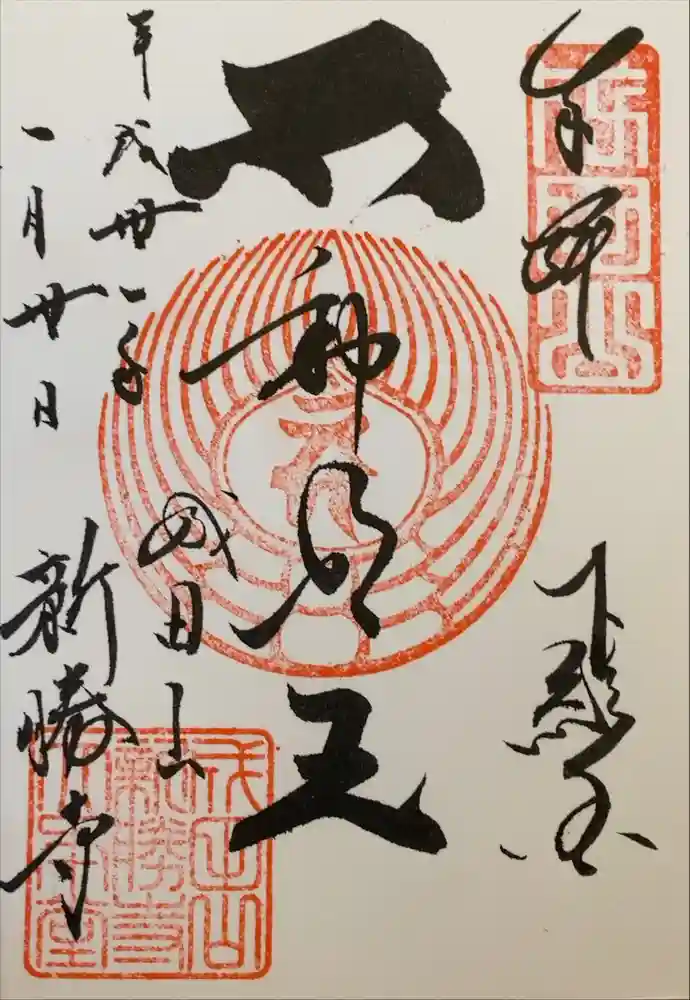 奉拝
下総国
不動明王
成田山
新勝寺
平成卅一年
一月廿日
成田山
新勝寺
大本堂